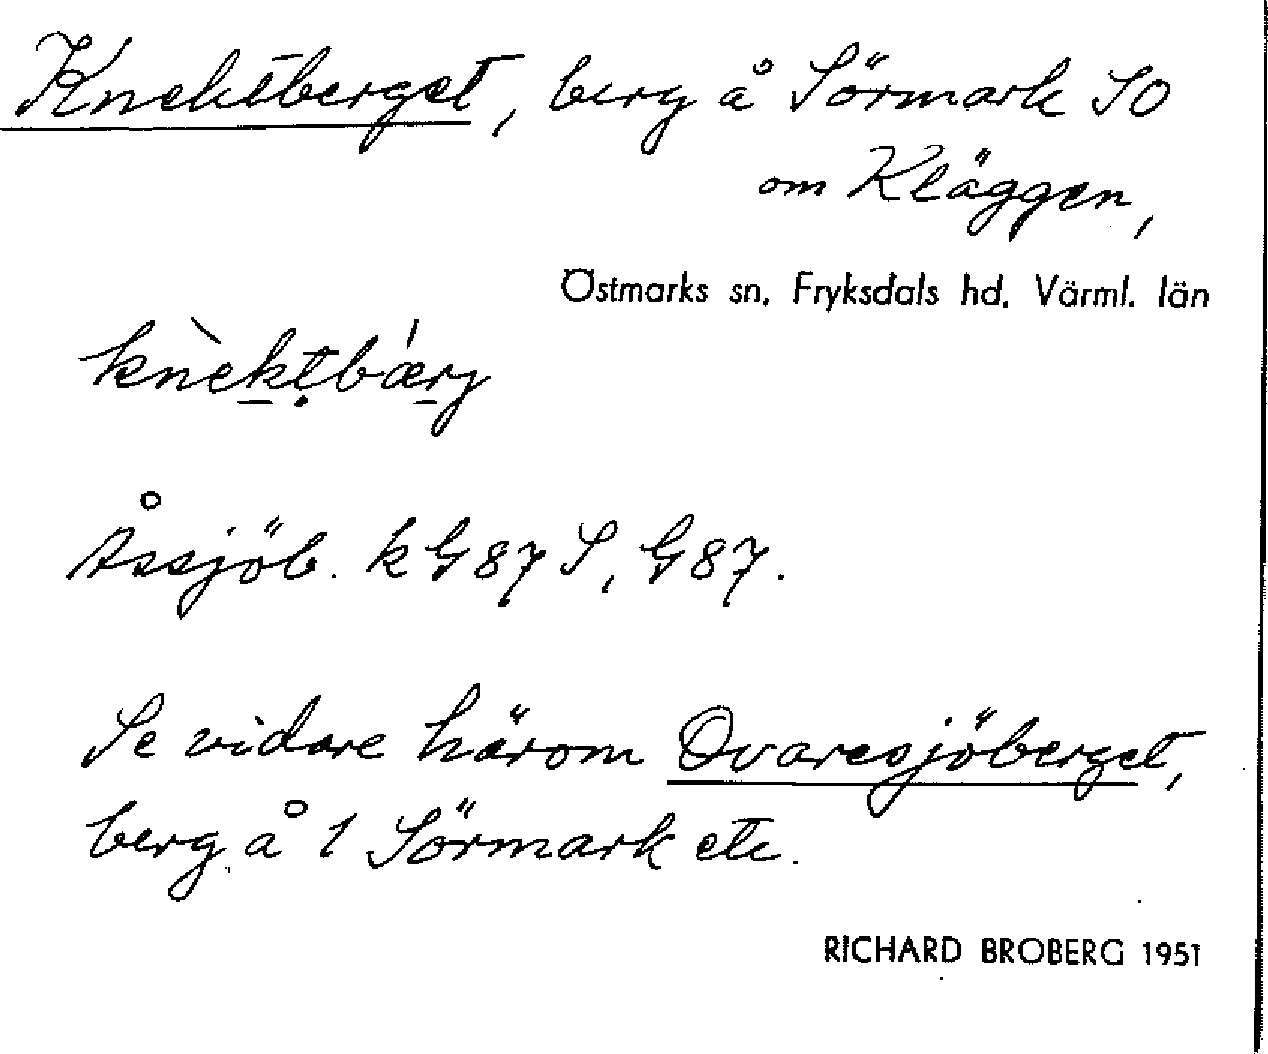 Knektberget, berg å Sörmark SO
om Kläggen,
Östmarks sn, Fryksdals hd. Värml. län
knèktbærj
Åssjöb. k G 87 S, G 87.
Se vidare härom Ovaresjöberget,
berg å 1 Sörmark etc.
RICHARD BROBERG 1951